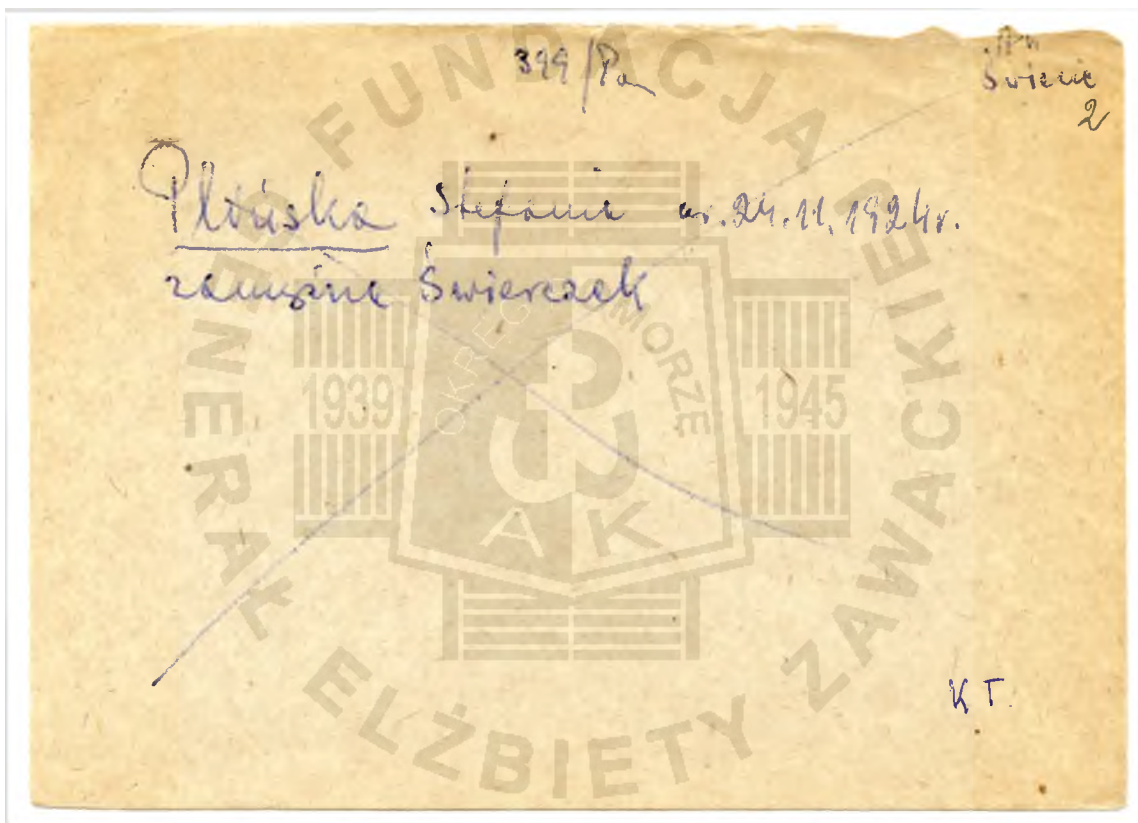 399/Pom
Świecie
2
Płońska Stefania ur. 24.11.1924r.
zamężna Świerczek
K T.
FUNDACJA GENERAŁ ELŻBIETY ZAWACKIEJ
OKRĘG POMORZE
1939 1945
AK